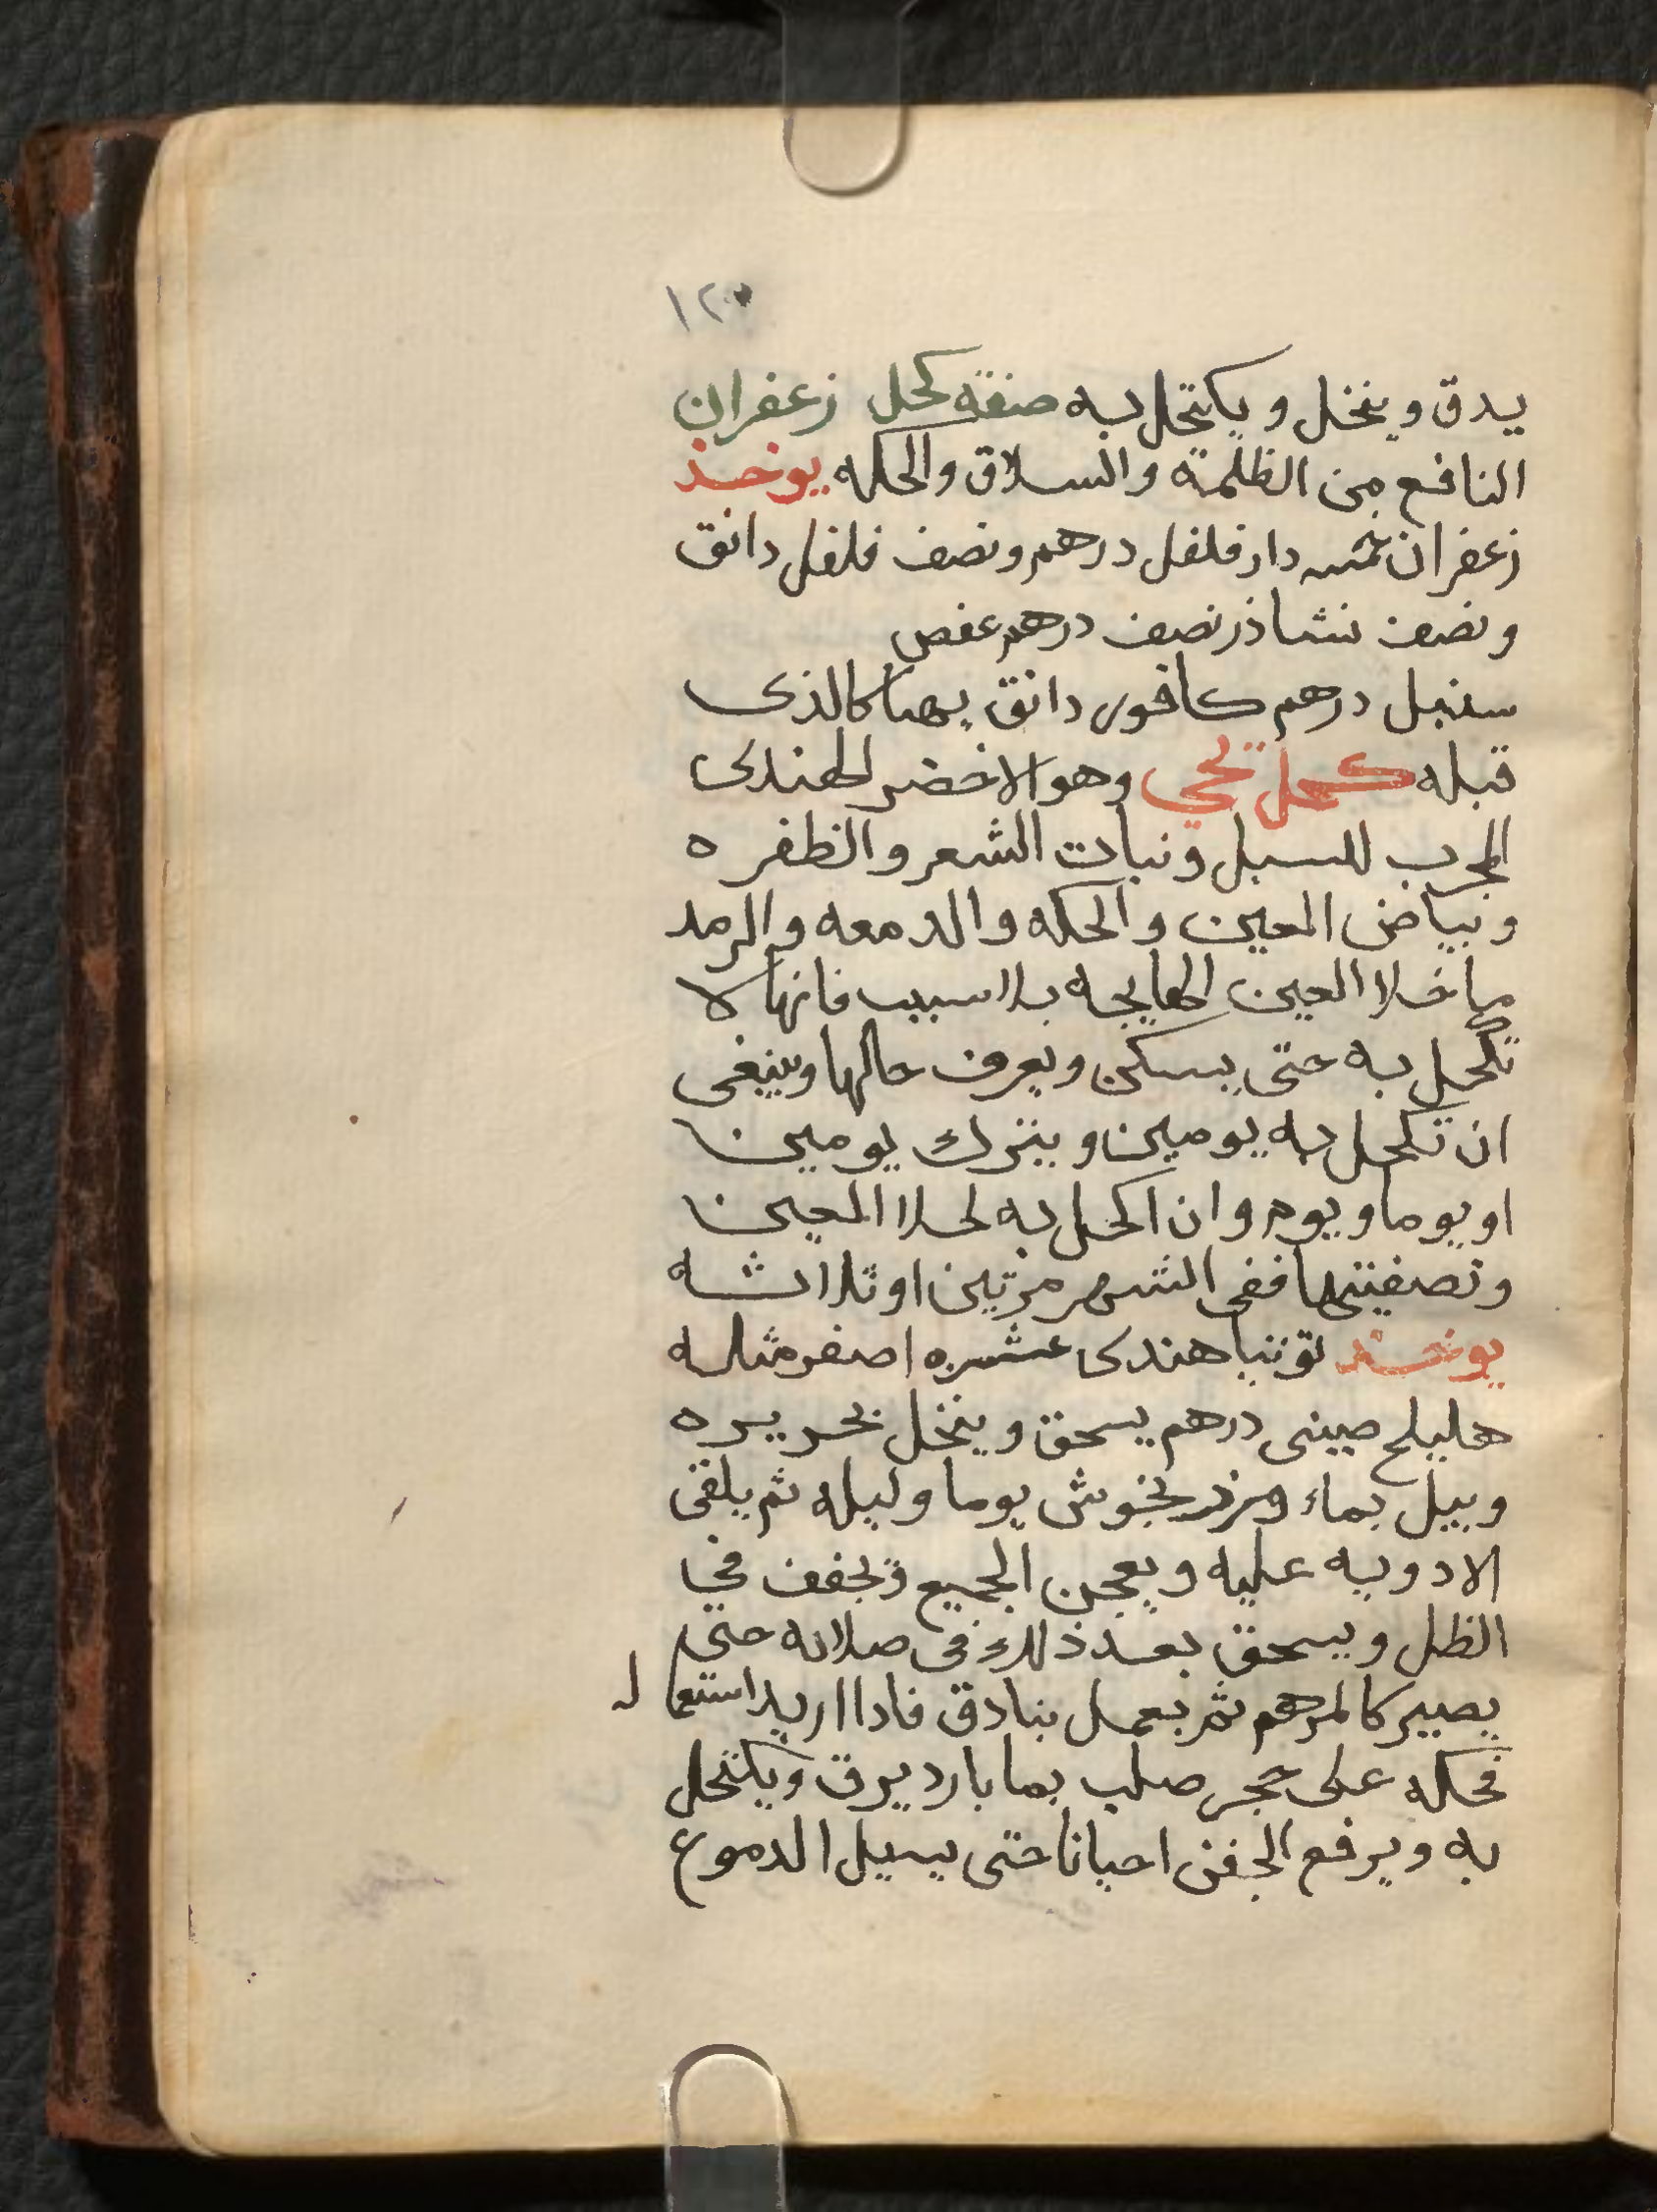 ١٢٠
يدق وينخل ويكتحل به صفة كحل زعفران
النافع من الظلمة والسلاق والحكه يوخذ
زعفران خمسه دار فلفل درهم ونصف فلفل دانق
ونصف نشاذر نصف درهم عفص
سنبل درهم كافور دانق يهيا كالذى
قبله كحل وهو الاخضر الهندى
المجرب للسبل ونبات الشعر والظفره
وبياض العين والحكه والدمعه والرمد
ما خلا العين الهايجه بلا سبب فانها لا
تكحل به حتى يسكن ويعرف حالها وينبغى
ان تكحل به يومين ويترك يومين
او يوما ويوم وان اكحل به لجلا العين
وتصفيتها ففى الشهر مرتين او ثلاثه
يوخذ توتيا هندى عشره اصفر مثله
هليلج صينى درهم يسحق وينخل بحريره
ويبل بماء مرزنجوش يوما وليله ثم يلقى
الادويه عليه ويعجن الجميع ويجفف في
الظل ويسحق بعد ذلك فى صلايه حتى
يصير كالمرهم ثم يعمل بنادق فادا اريد استعماله
فحكه على حجر صلب بما بارد يرق ويكتحل
به ويرفع الجفن احيانا حتى يسيل الدموع